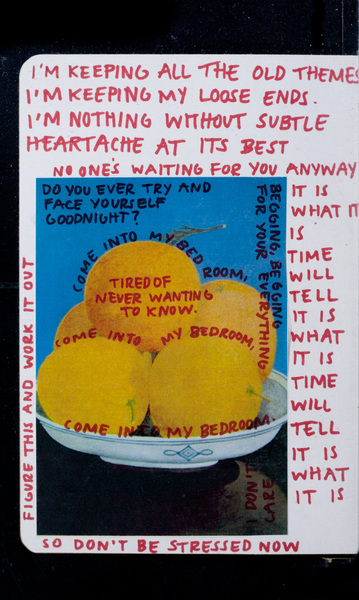 I'M KEEPING ALL THE OLD THEMES
I'M KEEPING MY LOOSE ENDS.
I'M NOTHING WITHOUT SUBTLE
HEARTACHE AT ITS BEST
NO ONE'S WAITING FOR YOU ANYWAY
DO YOU EVER TRY AND
FACE YOURSELF
GOODNIGHT?
COME INTO MY BEDROOM,
TIRED OF
NEVER WANTING
TO KNOW.
COME INTO MY BEDROOM,
COME INTO MY BEDROOM.
BEGGING, BEGGING
FOR YOUR EVERYTHING
I DON'T
CARE
IT IS
WHAT IT
IS
TIME
WILL
TELL
IT IS
WHAT
IT IS
TIME
WILL
TELL
IT IS
WHAT
IT IS
FIGURE THIS AND WORK IT OUT
SO DON'T BE STRESSED NOW